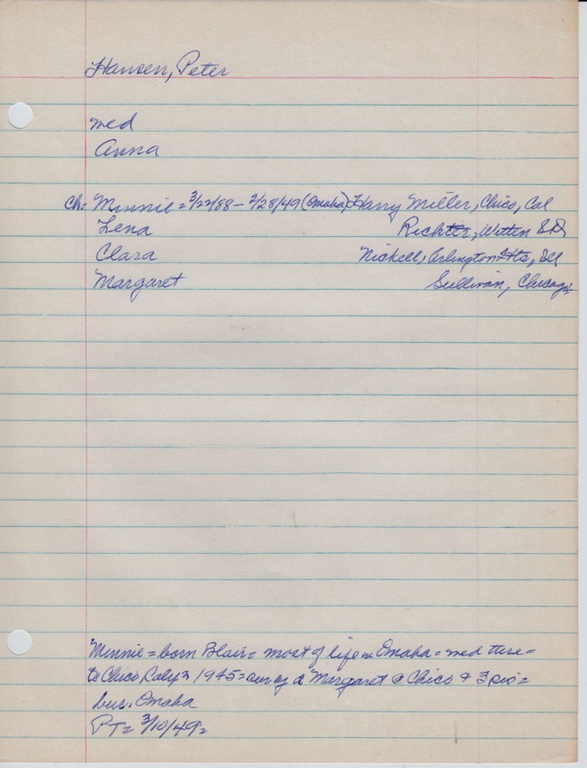 Hansen, Peter
med
Anna
Ch: Minnie = 3/22/88 - 2/28/49 (Omaha) Harry Miller, Chico, Cal
Lena Richter, Witten S.D.
Clara Nickell, Arlington Hts, Ill
Margaret Sullivan, Chicago
Minnie = born Blair = most of life in Omaha = med there =
to Chico, Calif in 1945 = sur by d Margaret @ Chico & 3 sis =
bur. Omaha
PT = 3/10/49 =